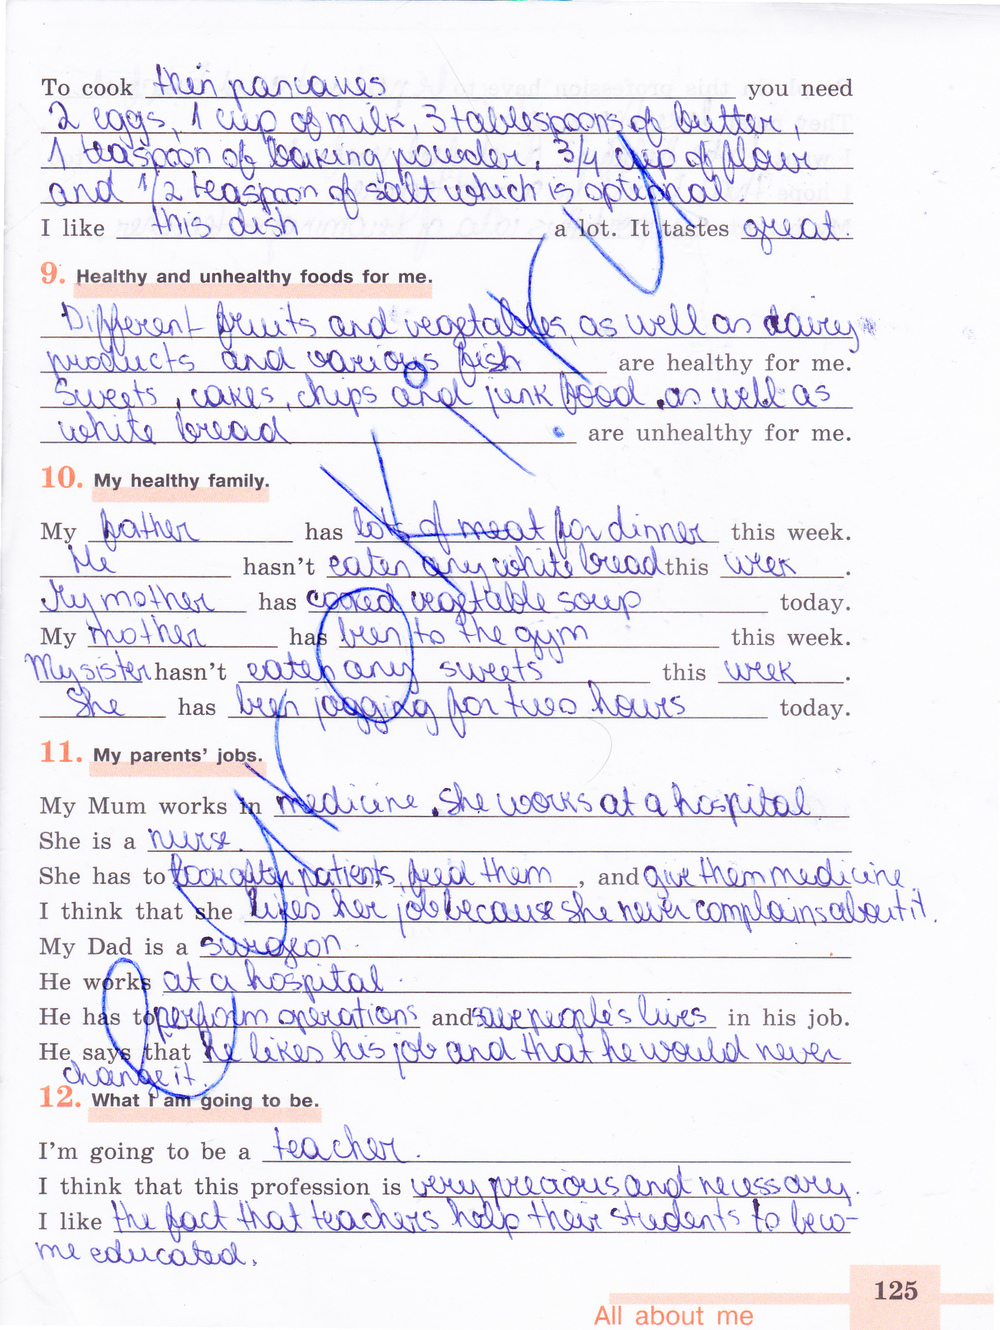 To cook thin pancakes you need
2 eggs, 1 cup of milk, 3 tablespoons of butter,
1 teaspoon of baking powder, 3/4 cup of flour
and 1/2 teaspoon of salt which is optional.
I like this dish a lot. It tastes great.
9. Healthy and unhealthy foods for me.
Different fruits and vegetables, as well as dairy
products and various fish are healthy for me.
Sweets, cakes, chips and junk food, as well as
white bread are unhealthy for me.
10. My healthy family.
My father has lots of meat for dinner this week.
He hasn't eaten any white bread this week.
My mother has cooked vegetable soup today.
My mother has been to the gym this week.
My sister hasn't eaten any sweets this week.
She has been jogging for two hours today.
11. My parents' jobs.
My Mum works in medicine. She works at a hospital
She is a nurse.
She has to look after patients, feed them, and give them medicine.
I think that she likes her job because she never complains about it.
My Dad is a surgeon.
He works at a hospital.
He has to perform operations and save people's lives in his job.
He says that he likes his job and that he would never
change it.
12. What I am going to be.
I'm going to be a teacher.
I think that this profession is very precious and necessary.
I like the fact that teachers help their students to beco-
me educated.
125
All about me